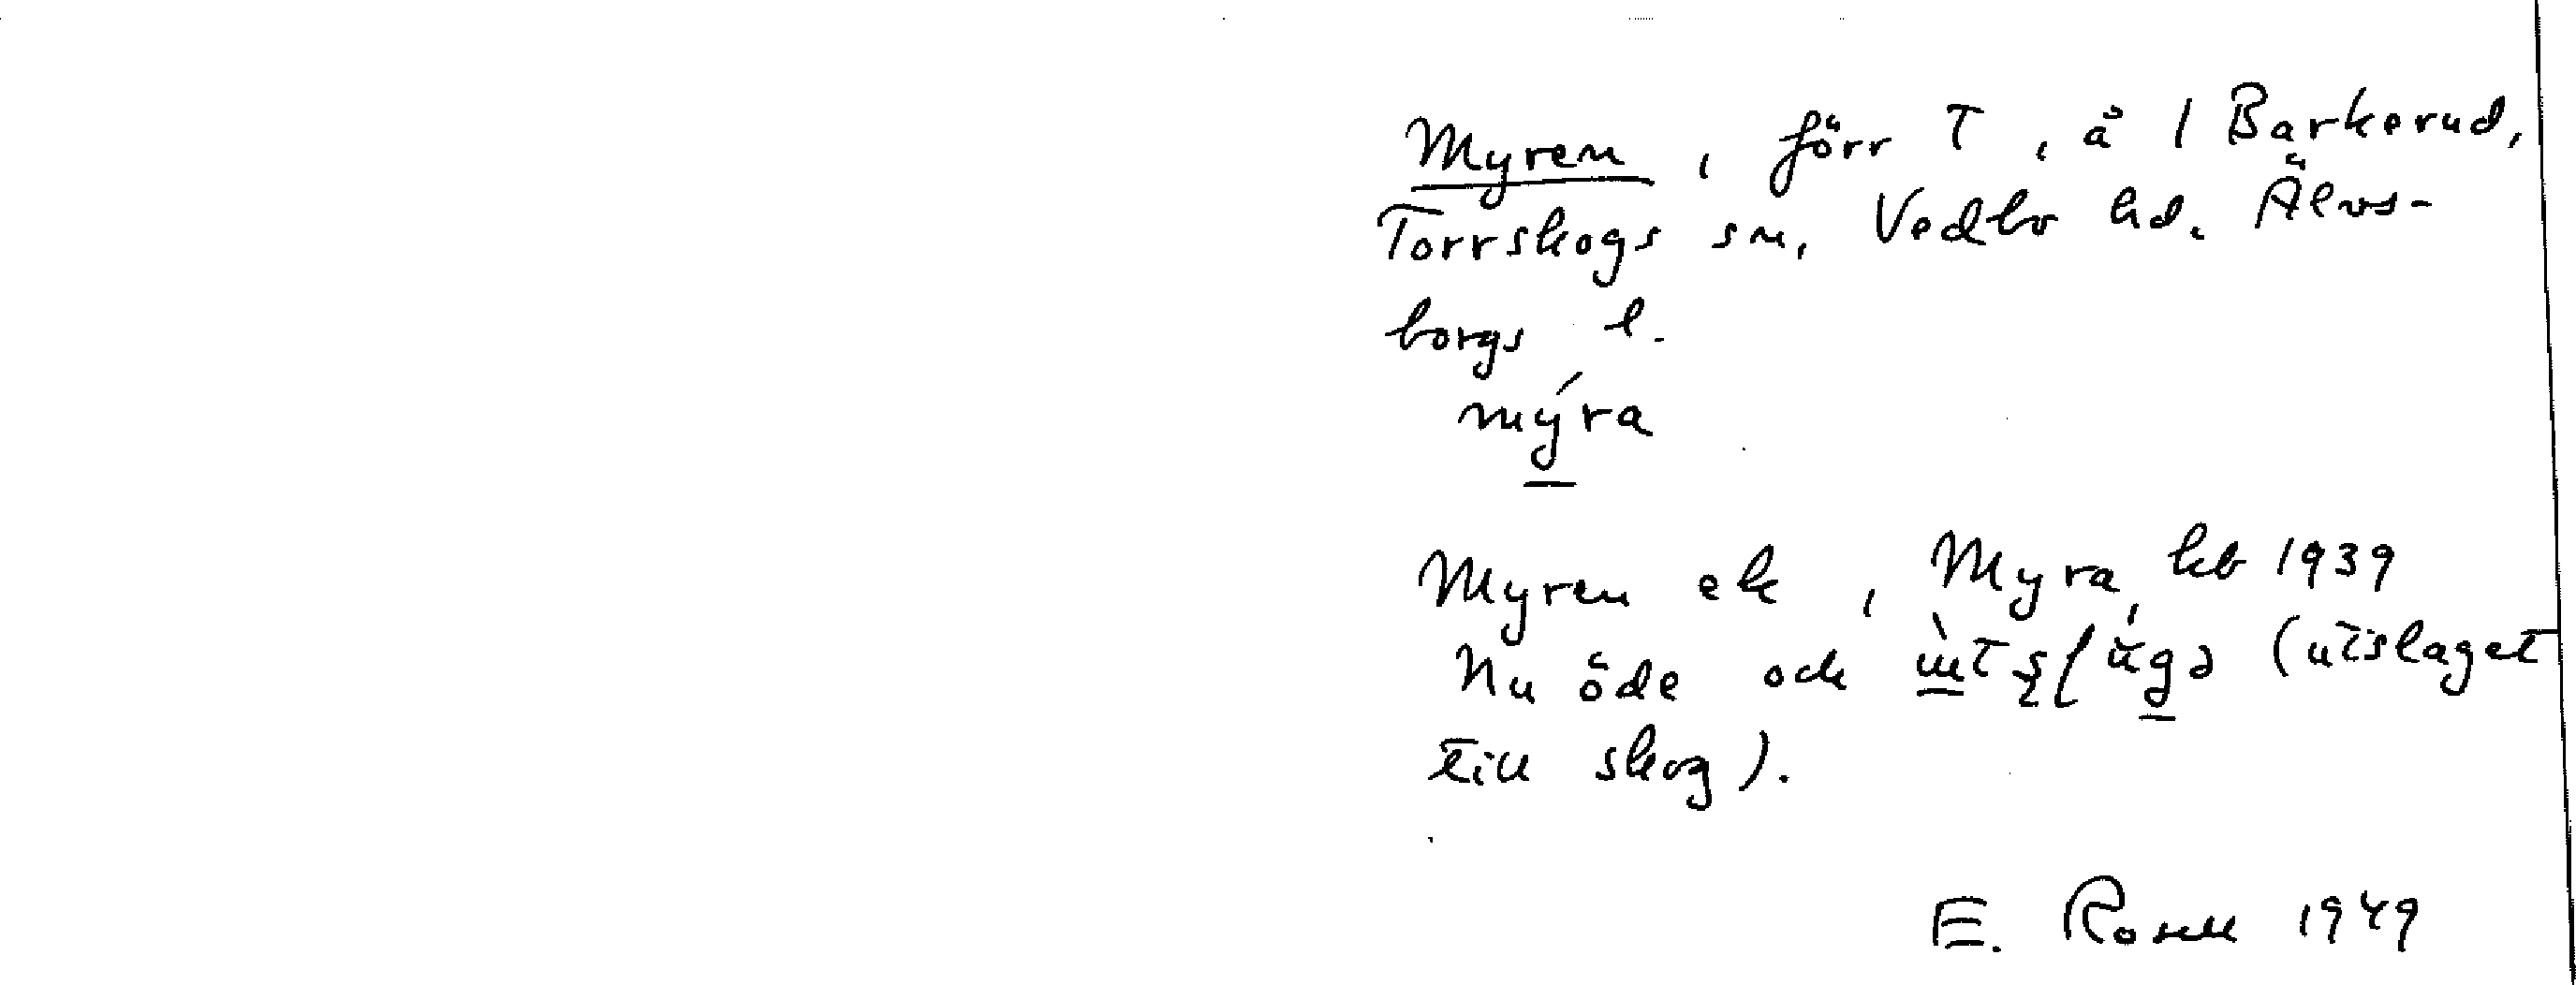 Myren, förr T, å 1 Barkerud,
Torrskogs sn, Vedbo hd. Älvs-
borgs l.
mýra
Myren ek, Myra, kb 1939
Nu öde och (utslaget
till skog).
E. Rosell 1949